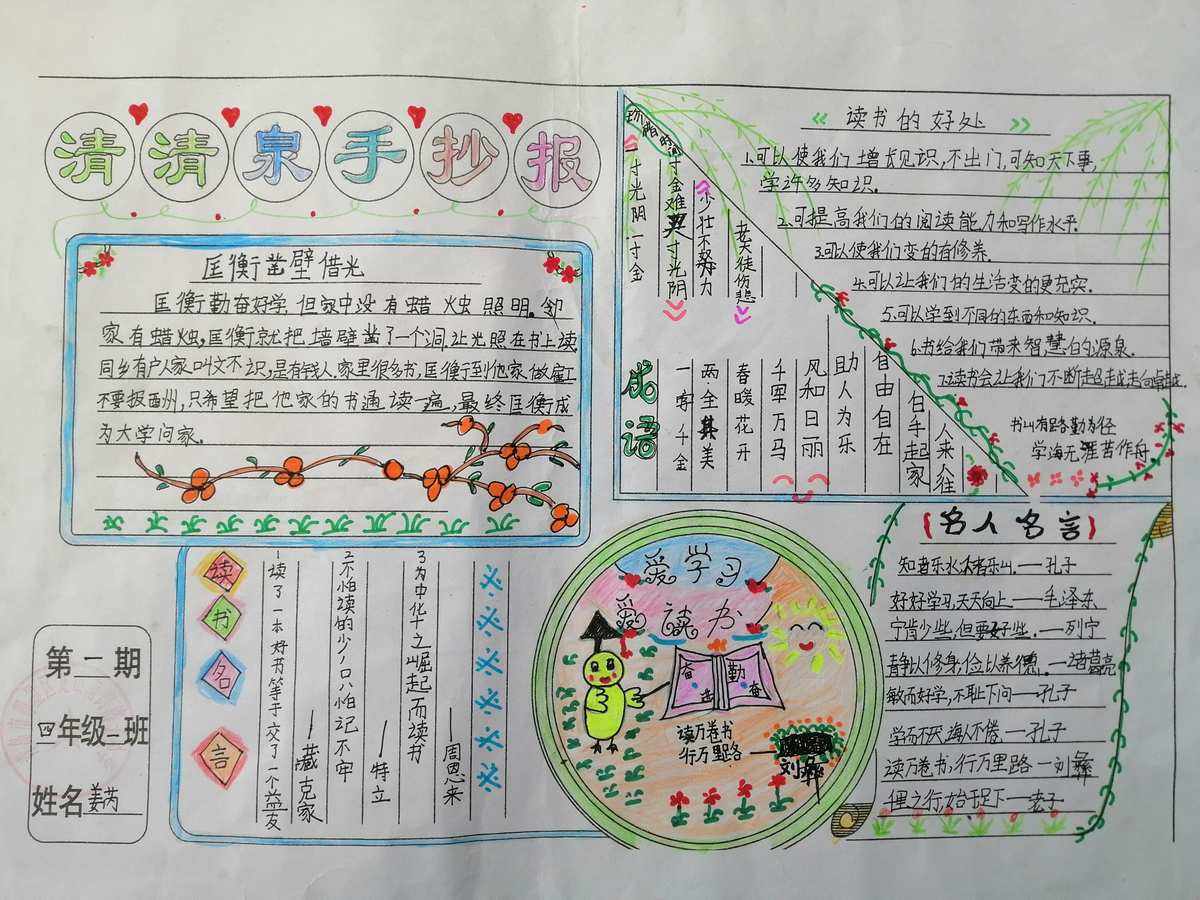 清清泉手抄报
匡衡凿壁借光
匡衡勤奋好学,但家中没有蜡烛照明。邻
家有蜡烛,匡衡就把墙壁凿了一个洞让光照在书上读
同乡有户人家叫文不识,是有钱人.家里很多书,匡衡到他家做雇工
不要报西州,只希望把他家的书通读一遍,最终匡衡成
为大学问家.
一寸光阴一寸金
寸金难买寸光阴
少壮不努力
老大徒伤悲
成语
一字千金
两全其美
春暖花开
千军万马
风和日丽
助人为乐
自由自在
白手起家
人来人往
读书的好处
1.可以使我们增长见识,不出门,可知天下事,
学许多知识.
2.可提高我们的阅读能力和写作水平.
3.可以使我们变的有修养.
4.可以让我们的生活变的更充实.
5.可以学到不同的东西和知识.
6.书给我们带来智慧的源泉.
7.读书会让我们不断超越走向卓越.
书山有路勤为径
学海无涯苦作舟
第二期
四年级一班
姓名
读书名言
1读了一本好书等于交了一个益友
——臧克家
2不怕读的少,只怕记不牢
——特立
3为中华之崛起而读书
——周恩来
爱学习
爱读书
奋
勤
奋
读万卷书
行万里路——
刘彝
名人名言
知者乐水,仁者乐山.——孔子
好好学习,天天向上——毛泽东
宁肯少些,但要好些.——列宁
静以修身,俭以养德.——诸葛亮
敏而好学,不耻下问——孔子
学而不厌,诲人不倦.——孔子
读万卷书,行万里路—刘彝
千里之行,始于足下——老子